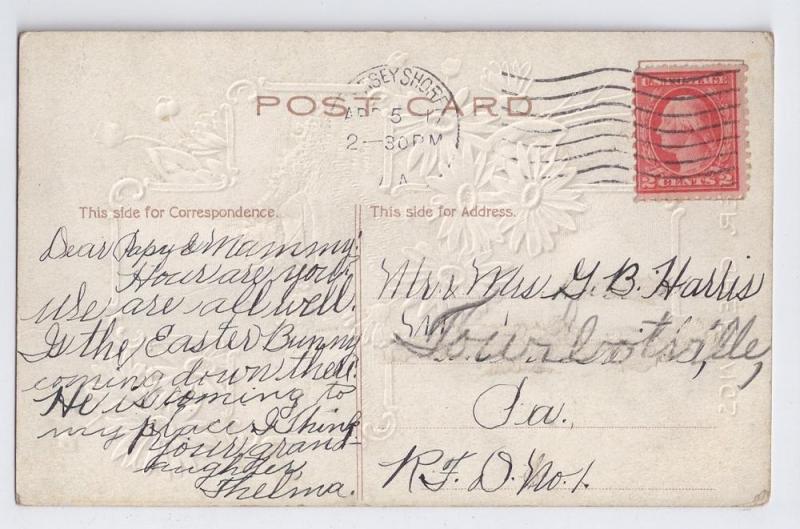 POST CARD
JERSEY SHORE
APR 5
2-30 PM
A
U.S. POSTAGE
2 CENTS 2
This side for Correspondence.
This side for Address.
Dear Papy & Mammy:
How are you?
We are all well.
Is the Easter Bunny
coming down there.
He is coming to
my place I think
your grand-
aughter,
Thelma.
Mr & Mrs G. B. Harris
Tourbotville,
Pa.
R. F. D. No. 1.